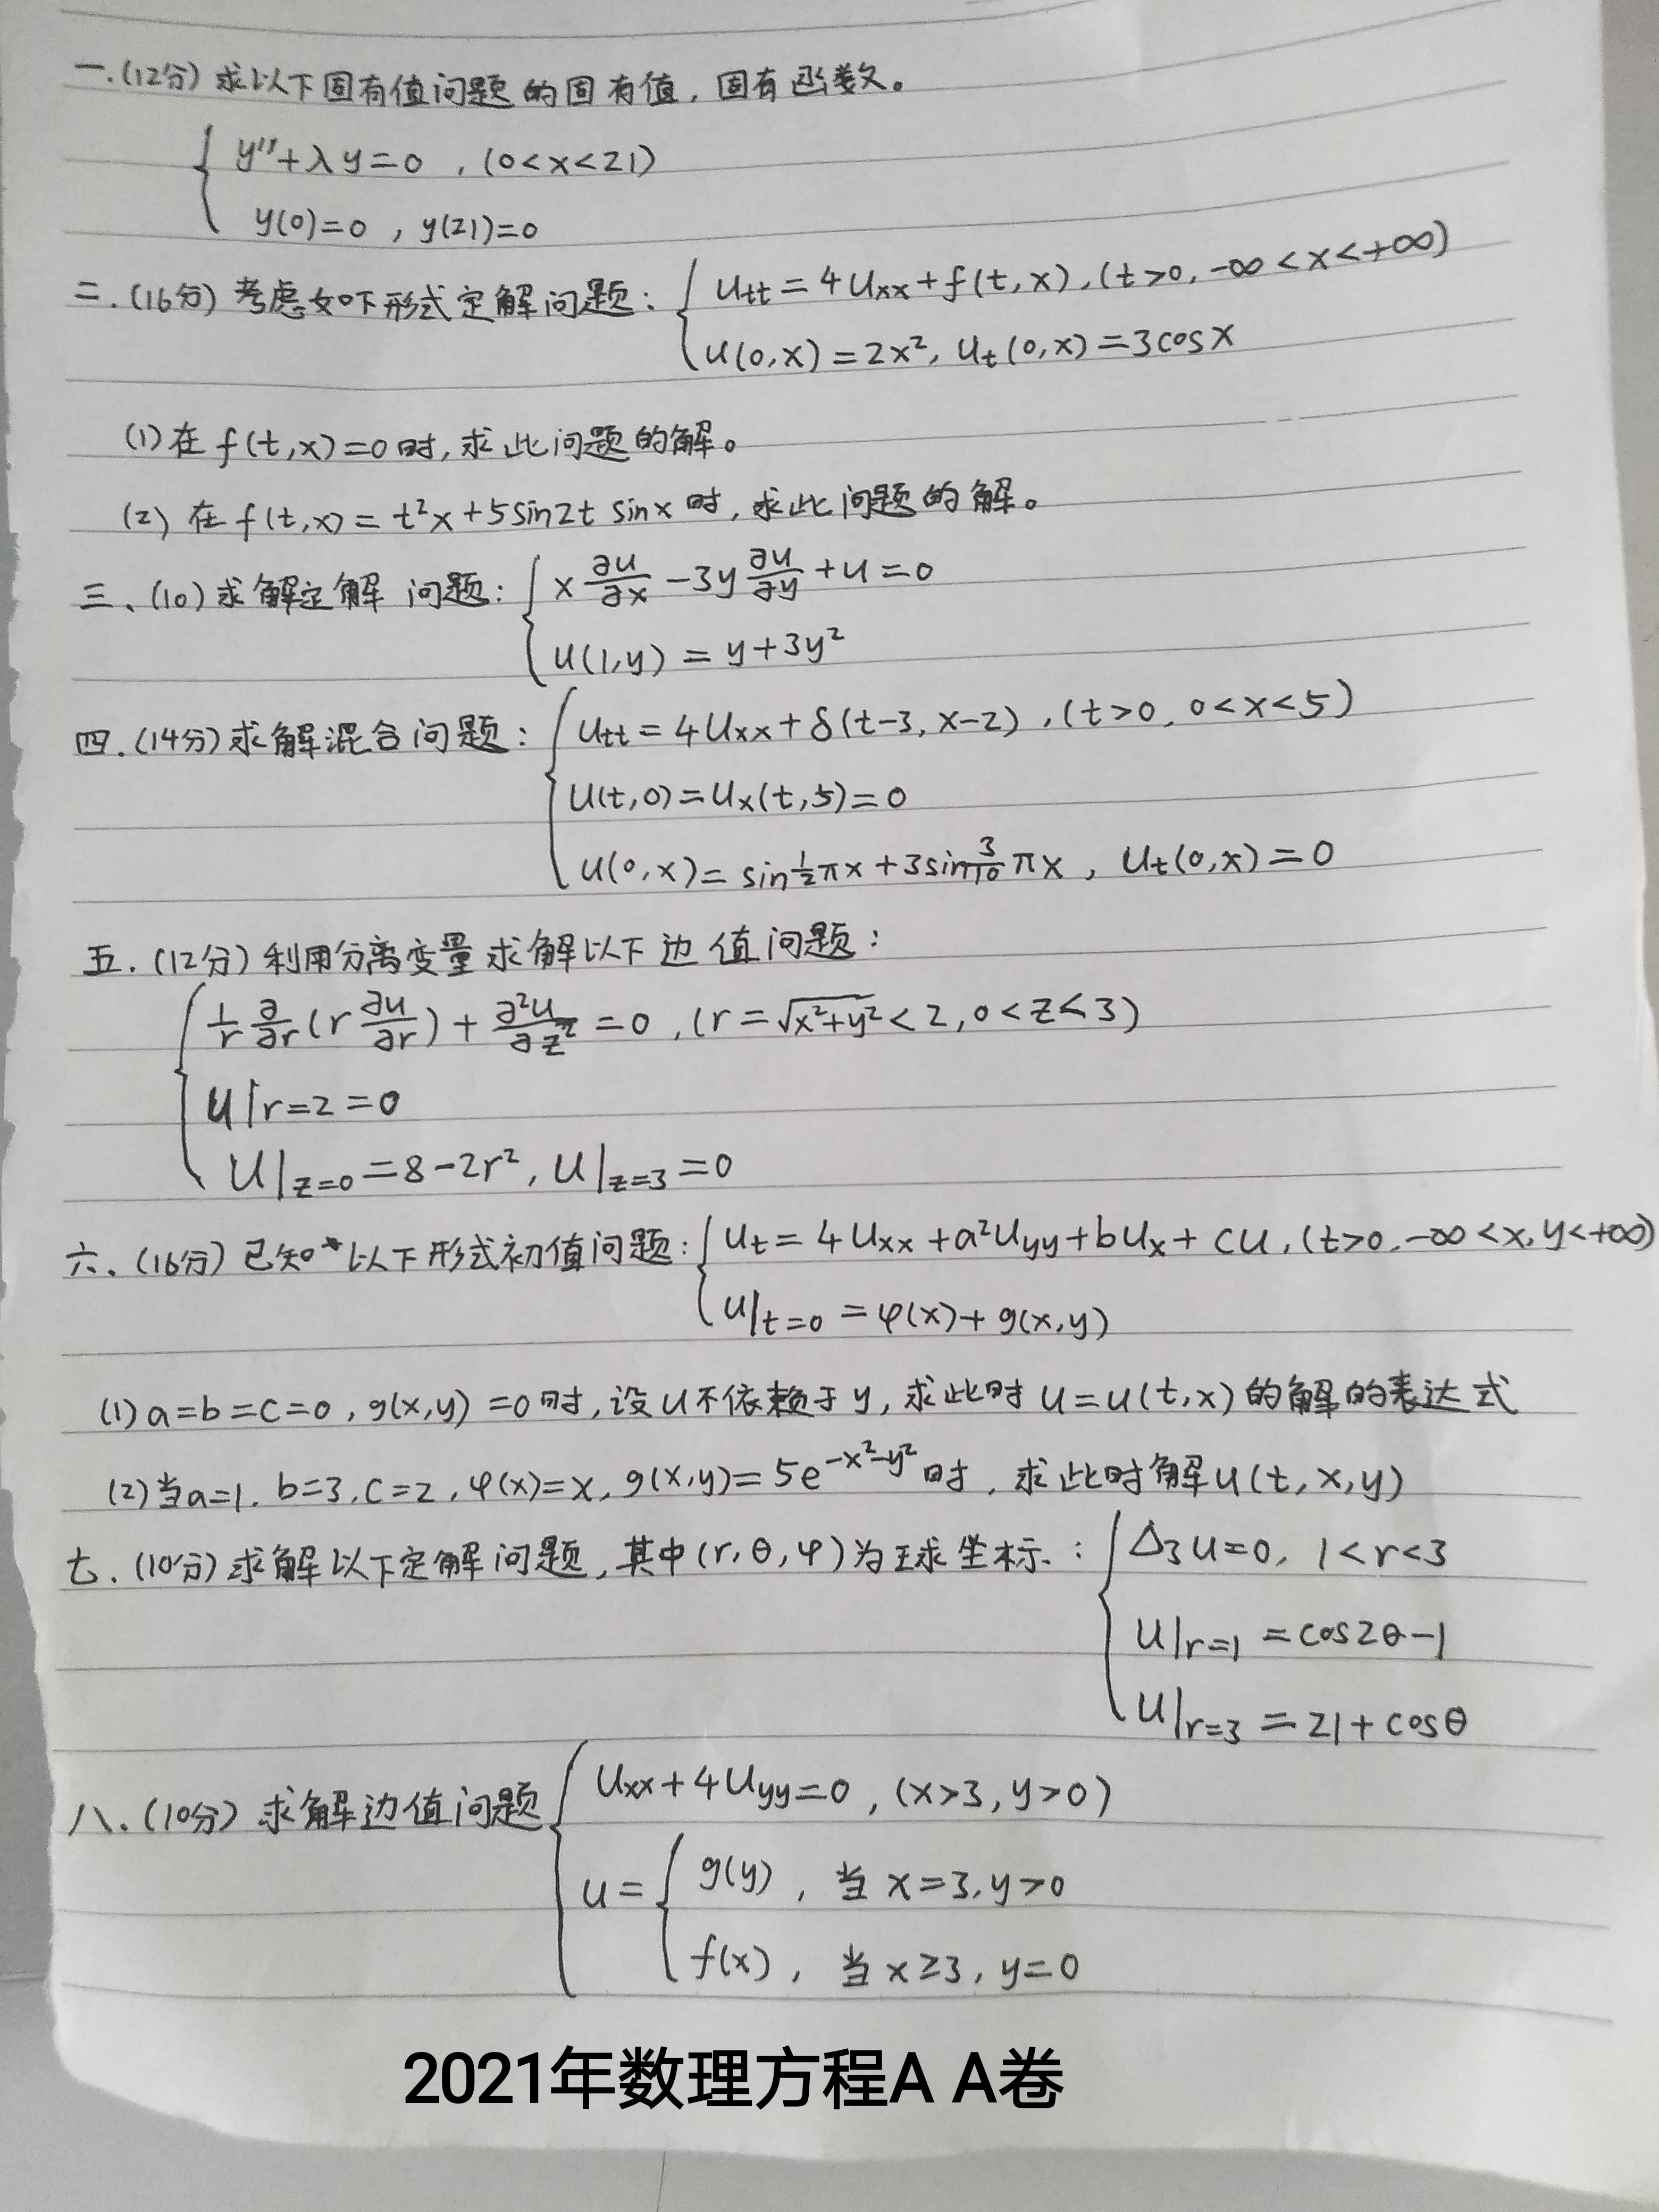 一.(12分) 求以下固有值问题的固有值,固有函数。
{ y''+λy=0 , (0<x<21)
y(0)=0 , y(21)=0
二.(16分) 考虑如下形式定解问题: { Utt=4Uxx+f(t,x), (t>0, -∞<x<+∞)
U(0,x)=2x², Ut(0,x)=3cosx
(1)在 f(t,x)=0时,求此问题的解。
(2) 在 f(t,x)=t²x+5sin2t sinx 时,求此问题的解。
三、(10)求解定解 问题: { x ∂u/∂x -3y ∂u/∂y +u=0
u(1,y) = y+3y²
四.(14分)求解混合问题: { Utt=4Uxx+δ(t-3, x-2) , (t>0, 0<x<5)
U(t,0)=Ux(t,5)=0
U(0,x)= sin½πx+3sin3/10πx , Ut(0,x)=0
五.(12分)利用分离变量求解以下边值问题:
{ 1/r ∂/∂r(r ∂u/∂r) + ∂²u/∂z² =0 , (r=√x²+y²<2, 0<z<3)
u|r=2 =0
U|z=0 =8-2r², U|z=3 =0
六、(16分) 已知以下形式初值问题: { Ut=4Uxx+a²Uyy+bUx+cu, (t>0, -∞<x,y<+∞)
U|t=0 =φ(x)+g(x,y)
(1)a=b=c=0, g(x,y)=0时,设u不依赖于y,求此时u=u(t,x)的解的表达式
(2)当a=1, b=3, c=2, φ(x)=x, g(x,y)=5e^(-x²-y²)时,求此时解u(t,x,y)
七.(10分)求解以下定解问题,其中(r,θ,φ)为球坐标: { Δ3u=0, 1<r<3
U|r=1 =cos2θ-1
U|r=3 =21+cosθ
八、(10分) 求解边值问题 { Uxx+4Uyy=0 , (x>3, y>0)
u= { g(y) , 当 x=3, y>0
f(x) , 当 x≥3, y=0
2021年数理方程A A卷